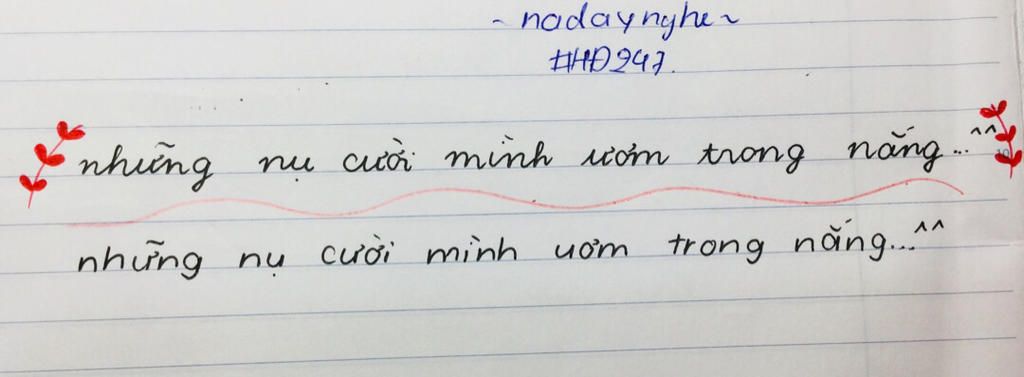 ~ nadaynghe ~
#HĐ247.
những nụ cười mình ươm trong nắng...^^
những nụ cười mình ươm trong nắng...^^